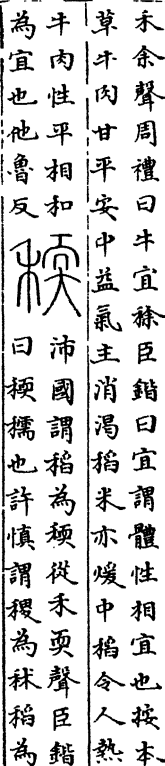 禾余聲周禮曰牛宜稌臣鍇曰宜謂體性相宜也按本
草牛肉甘平安中益氣主消渴稻米亦煖中稻令人熱
牛肉性平相和
為宜也他魯反
稬
沛國謂稻為稬從禾耎聲臣鍇
曰稬穤也許慎謂稷為秫稻為